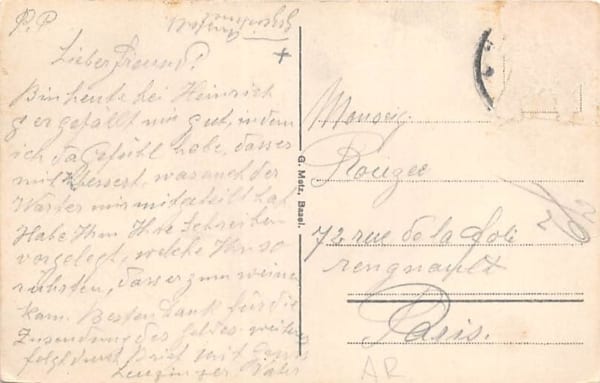 P.P
Lieber Freund!
Bin heute bei Heinrich
er gefällt mir gut, indem
ich das Gefühl habe, dass er
mit bessert, was auch der
Wärter mir mitgeteilt hat
Habe Ihm Ihre Schreiben
vorgelegt, welche Ihn so
rührten, dass er zum weinen
kam. Besten Dank für die
Zusendung des Geldes. weiteres
folgt durch Brief mit Gruss
Leuzinger Vater
G. Metz, Basel.
Monsieur
Rouzee
72 rue de la foli
rengnault
Paris.
AR